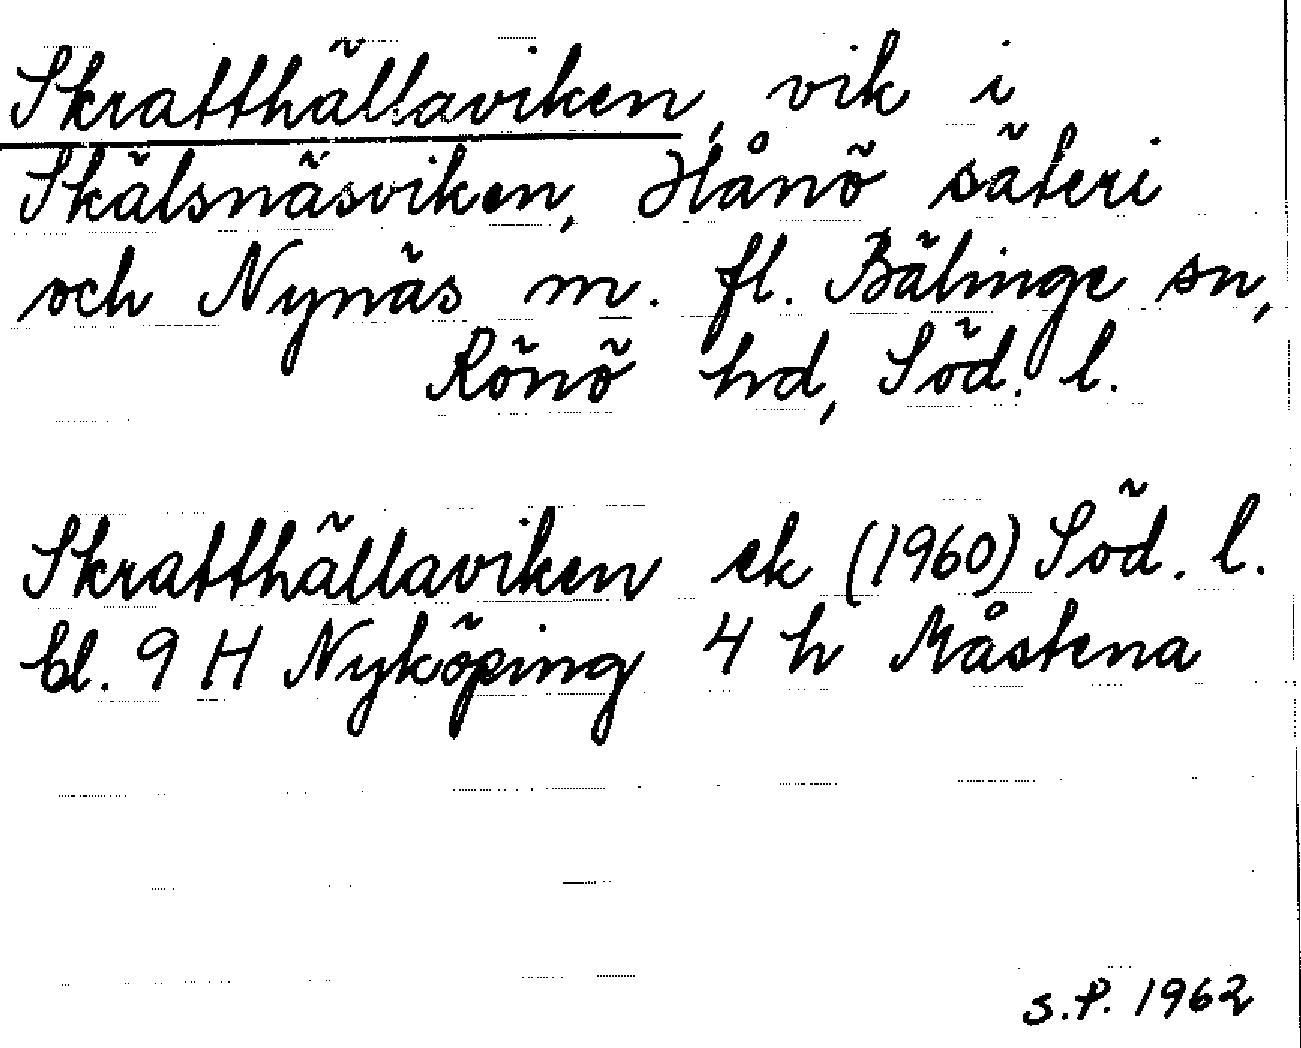 Skratthällaviken, vik i
Skälsnäsviken, Hånö säteri
och Nynäs m. fl. Bälinge sn,
Rönö hd, Söd. l.
Skratthällaviken ek (1960) Söd. l.
bl. 9 H Nyköping 4 h Måstena
S.P. 1962